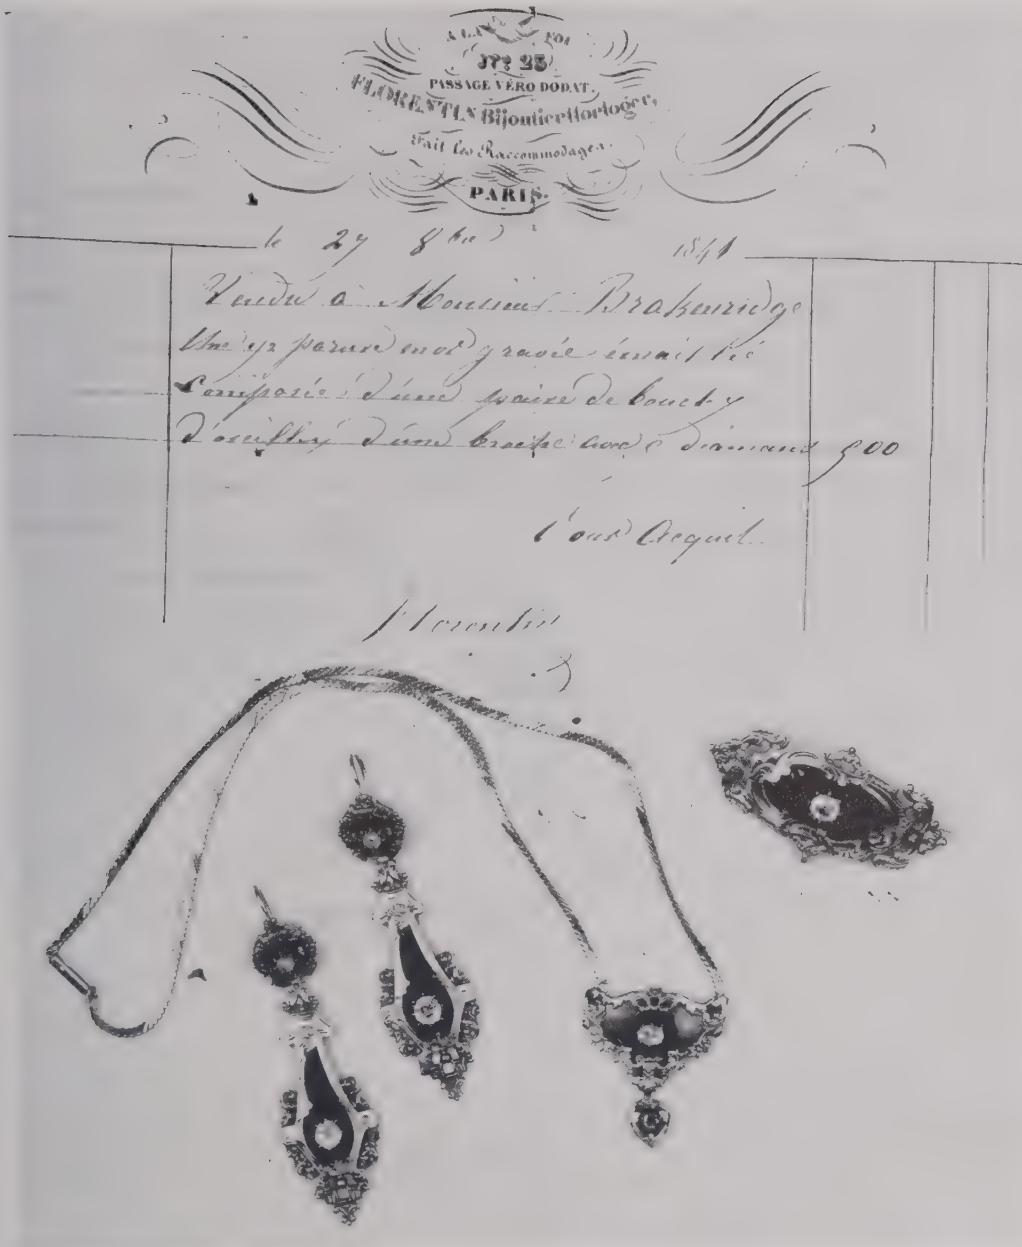 A LA FOI
Nº 23
PASSAGE VÉRO DODAT.
FLORENTIN Bijoutier Horloger,
Fait les Raccommodages.
PARIS.
le 27 8bre 1841
Vendu à Monsieur Brakenridge
Une parure en or gravée émaillé
Composée d'une paire de boucles
d'oreilles d'une broche avec 6 diamans 500
Pour Acquit
Florentin